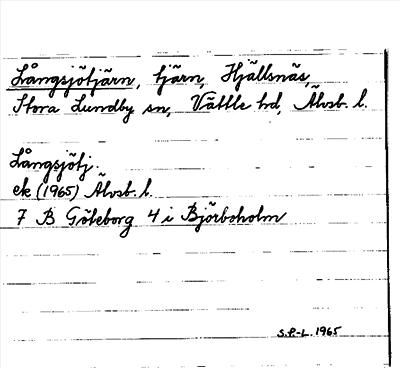 Långsjötjärn, tjärn, Hjällsnäs,
Stora Lundby sn, Vättle hd, Älvsb. l.
Långsjötj.
ek (1965) Älvsb. l.
7 B Göteborg 4 i Björboholm
S.P.-L. 1965